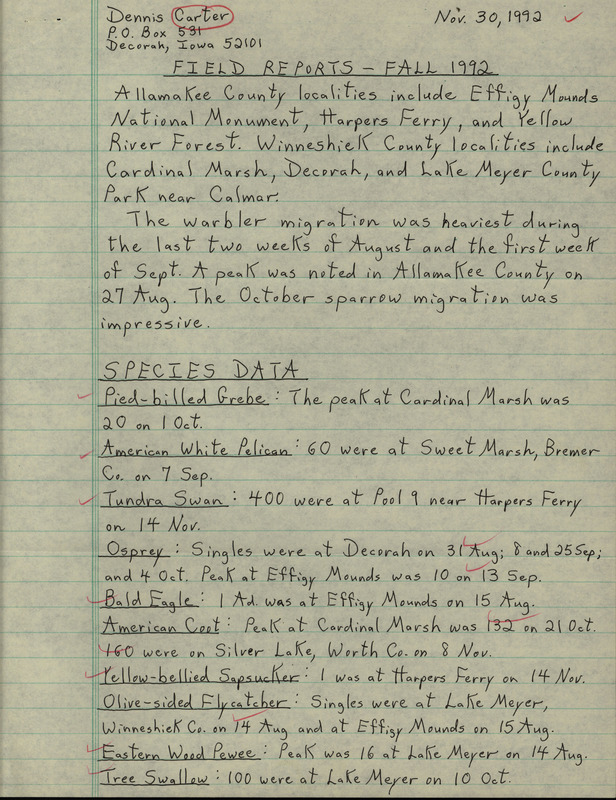 Dennis Carter
Nov. 30, 1992
P.O. Box 531
Decorah, Iowa 52101
FIELD REPORTS - FALL 1992
Allamakee County localities include Effigy Mounds
National Monument, Harpers Ferry, and Yellow
River Forest. Winneshiek County localities include
Cardinal Marsh, Decorah, and Lake Meyer County
Park near Calmar.
The warbler migration was heaviest during
the last two weeks of August and the first week
of Sept. A peak was noted in Allamakee County on
27 Aug. The October sparrow migration was
impressive.
SPECIES DATA
Pied-billed Grebe: The peak at Cardinal Marsh was
20 on 1 Oct.
American White Pelican: 60 were at Sweet Marsh, Bremer
Co. on 7 Sep.
Tundra Swan: 400 were at Pool 9 near Harpers Ferry
on 14 Nov.
Osprey: Singles were at Decorah on 31 Aug; 8 and 25 Sep;
and 4 Oct. Peak at Effigy Mounds was 10 on 13 Sep.
Bald Eagle: 1 Ad. was at Effigy Mounds on 15 Aug.
American Coot: Peak at Cardinal Marsh was 132 on 21 Oct.
160 were on Silver Lake, Worth Co. on 8 Nov.
Yellow-bellied Sapsucker: 1 was at Harpers Ferry on 14 Nov.
Olive-sided Flycatcher: Singles were at Lake Meyer,
Winneshiek Co. on 14 Aug and at Effigy Mounds on 15 Aug.
Eastern Wood Pewee: Peak was 16 at Lake Meyer on 14 Aug.
Tree Swallow: 100 were at Lake Meyer on 10 Oct.